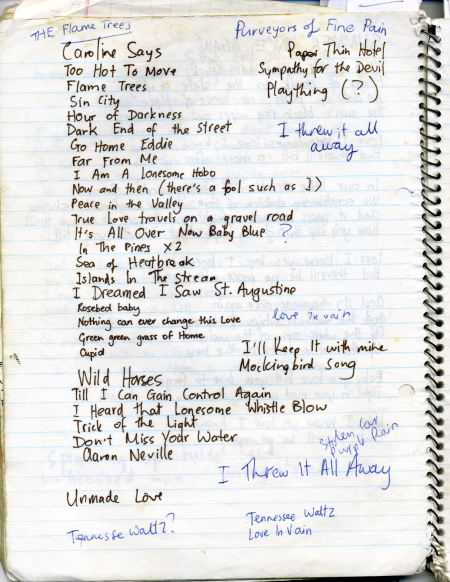 THE Flame Trees
Purveyors of Fine Pain
Caroline Says
Too Hot To Move
Flame Trees
Sin City
Hour of Darkness
Dark End of the Street
Go Home Eddie
Far From Me
I Am A Lonesome Hobo
Now and then (there's a fool such as I)
Peace in the Valley
True Love travels on a gravel road
It's All Over Now Baby Blue ?
In The Pines x2
Sea of Heartbreak
Islands In The Stream
I Dreamed I Saw St. Augustine
Rosebed baby
Nothing can ever change this Love
Green green grass of Home
Cupid
Wild Horses
Till I Can Gain Control Again
I Heard that Lonesome Whistle Blow
Trick of the Light
Don't Miss Your Water
Aaron Neville
Unmade Love
Tennesse Waltz?
Paper Thin Hotel
Sympathy for the Devil
Plaything (?)
I threw it all
away
love in vain
I'll Keep It with mine
Mockingbird Song
Stolen Car
Purple Rain
I Threw It All Away
Tennessee Waltz
Love In Vain